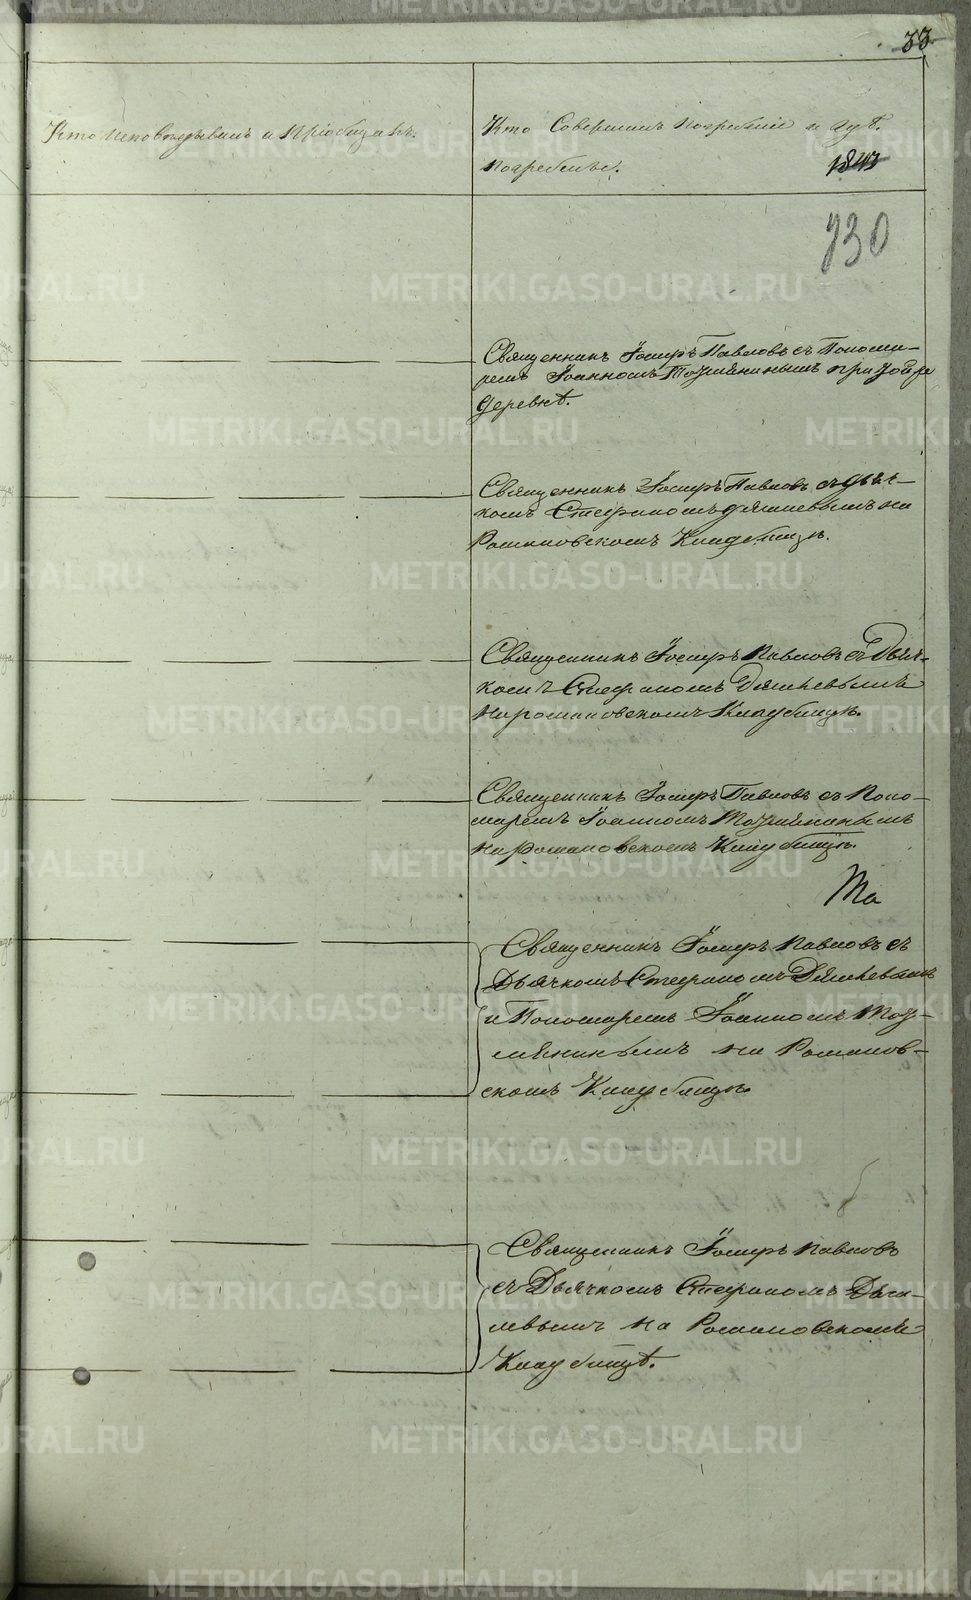 33
Кто исповѣдывалъ и пріобщалъ.
Кто совершилъ погребеніе и гдѣ
погребенъ.
1843
730
Священникъ Іосифъ Павловъ съ Пономо-
ремъ Іоанномъ при
деревнѣ.
Священникъ Іосифъ Павловъ съ дьяч-
комъ Стефаномъ на
Романовскомъ Кладбищѣ.
Священникъ Іосифъ Павловъ съ Дьяч-
комъ Стефаномъ
на романовскомъ Кладбищѣ.
Священникъ Іосифъ Павловъ съ Поно-
маремъ Іоанномъ
на романовскомъ Кладбищѣ.
Та
Священникъ Іосифъ Павловъ съ
Дьячкомъ Стефаномъ
и Пономаремъ Іоанномъ
на Романов-
скомъ Кладбищѣ.
Священникъ Іосифъ Павловъ
съ Дьячкомъ Стефаномъ
на Романовскомъ
Кладбищѣ.
METRIKI.GASO-URAL.RU